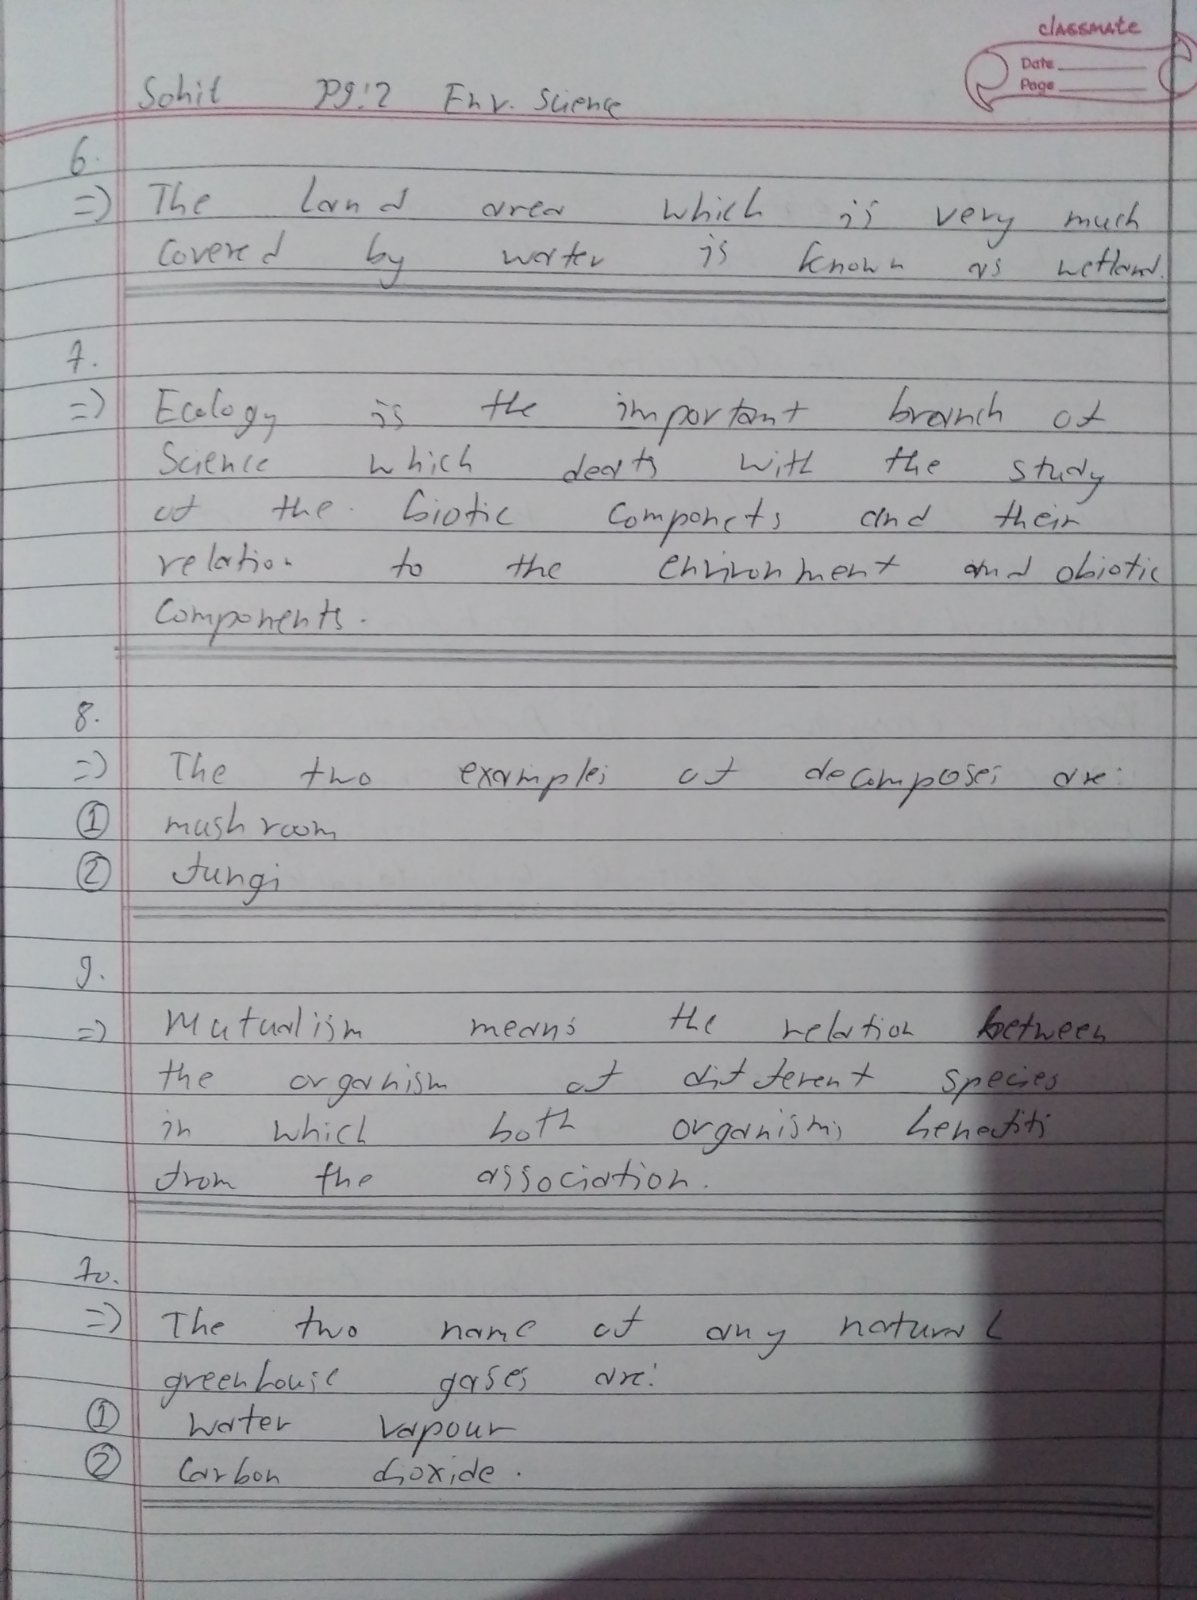 classmate
Date
Page
Sohil Pg:2 Env. Science
6.
=) The land area which is very much
covered by water is known as wetland.
7.
=) Ecology is the important branch of
Science which deals with the study
of the biotic componets and their
relation to the environment and abiotic
components.
8.
=) The two examples of decomposes are:
① mushroom
② fungi
9.
=) Mutualism means the relation between
the organism of different species
in which both organisms benefits
from the association.
10.
=) The two name of any natural
greenhouse gases are:
① Water vapour
② Carbon dioxide.